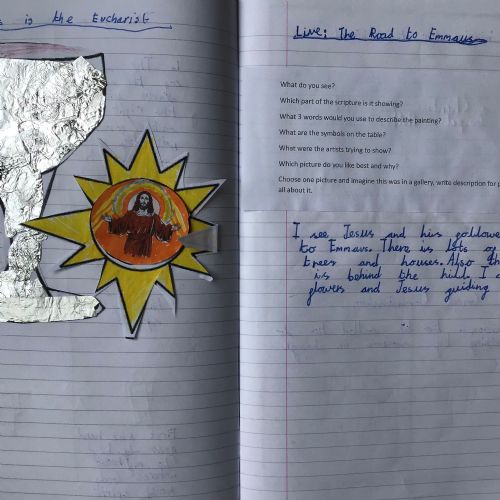 s is the Eucharist
Live; The Road to Emmaus
What do you see?
Which part of the scripture is it showing?
What 3 words would you use to describe the painting?
What are the symbols on the table?
What were the artists trying to show?
Which picture do you like best and why?
Choose one picture and imagine this was in a gallery, write description for
all about it.
I see Jesus and his followe
to Emmaus. There is lots of
trees and houses. Also th
is behind the hill. I
flowers and Jesus guiding